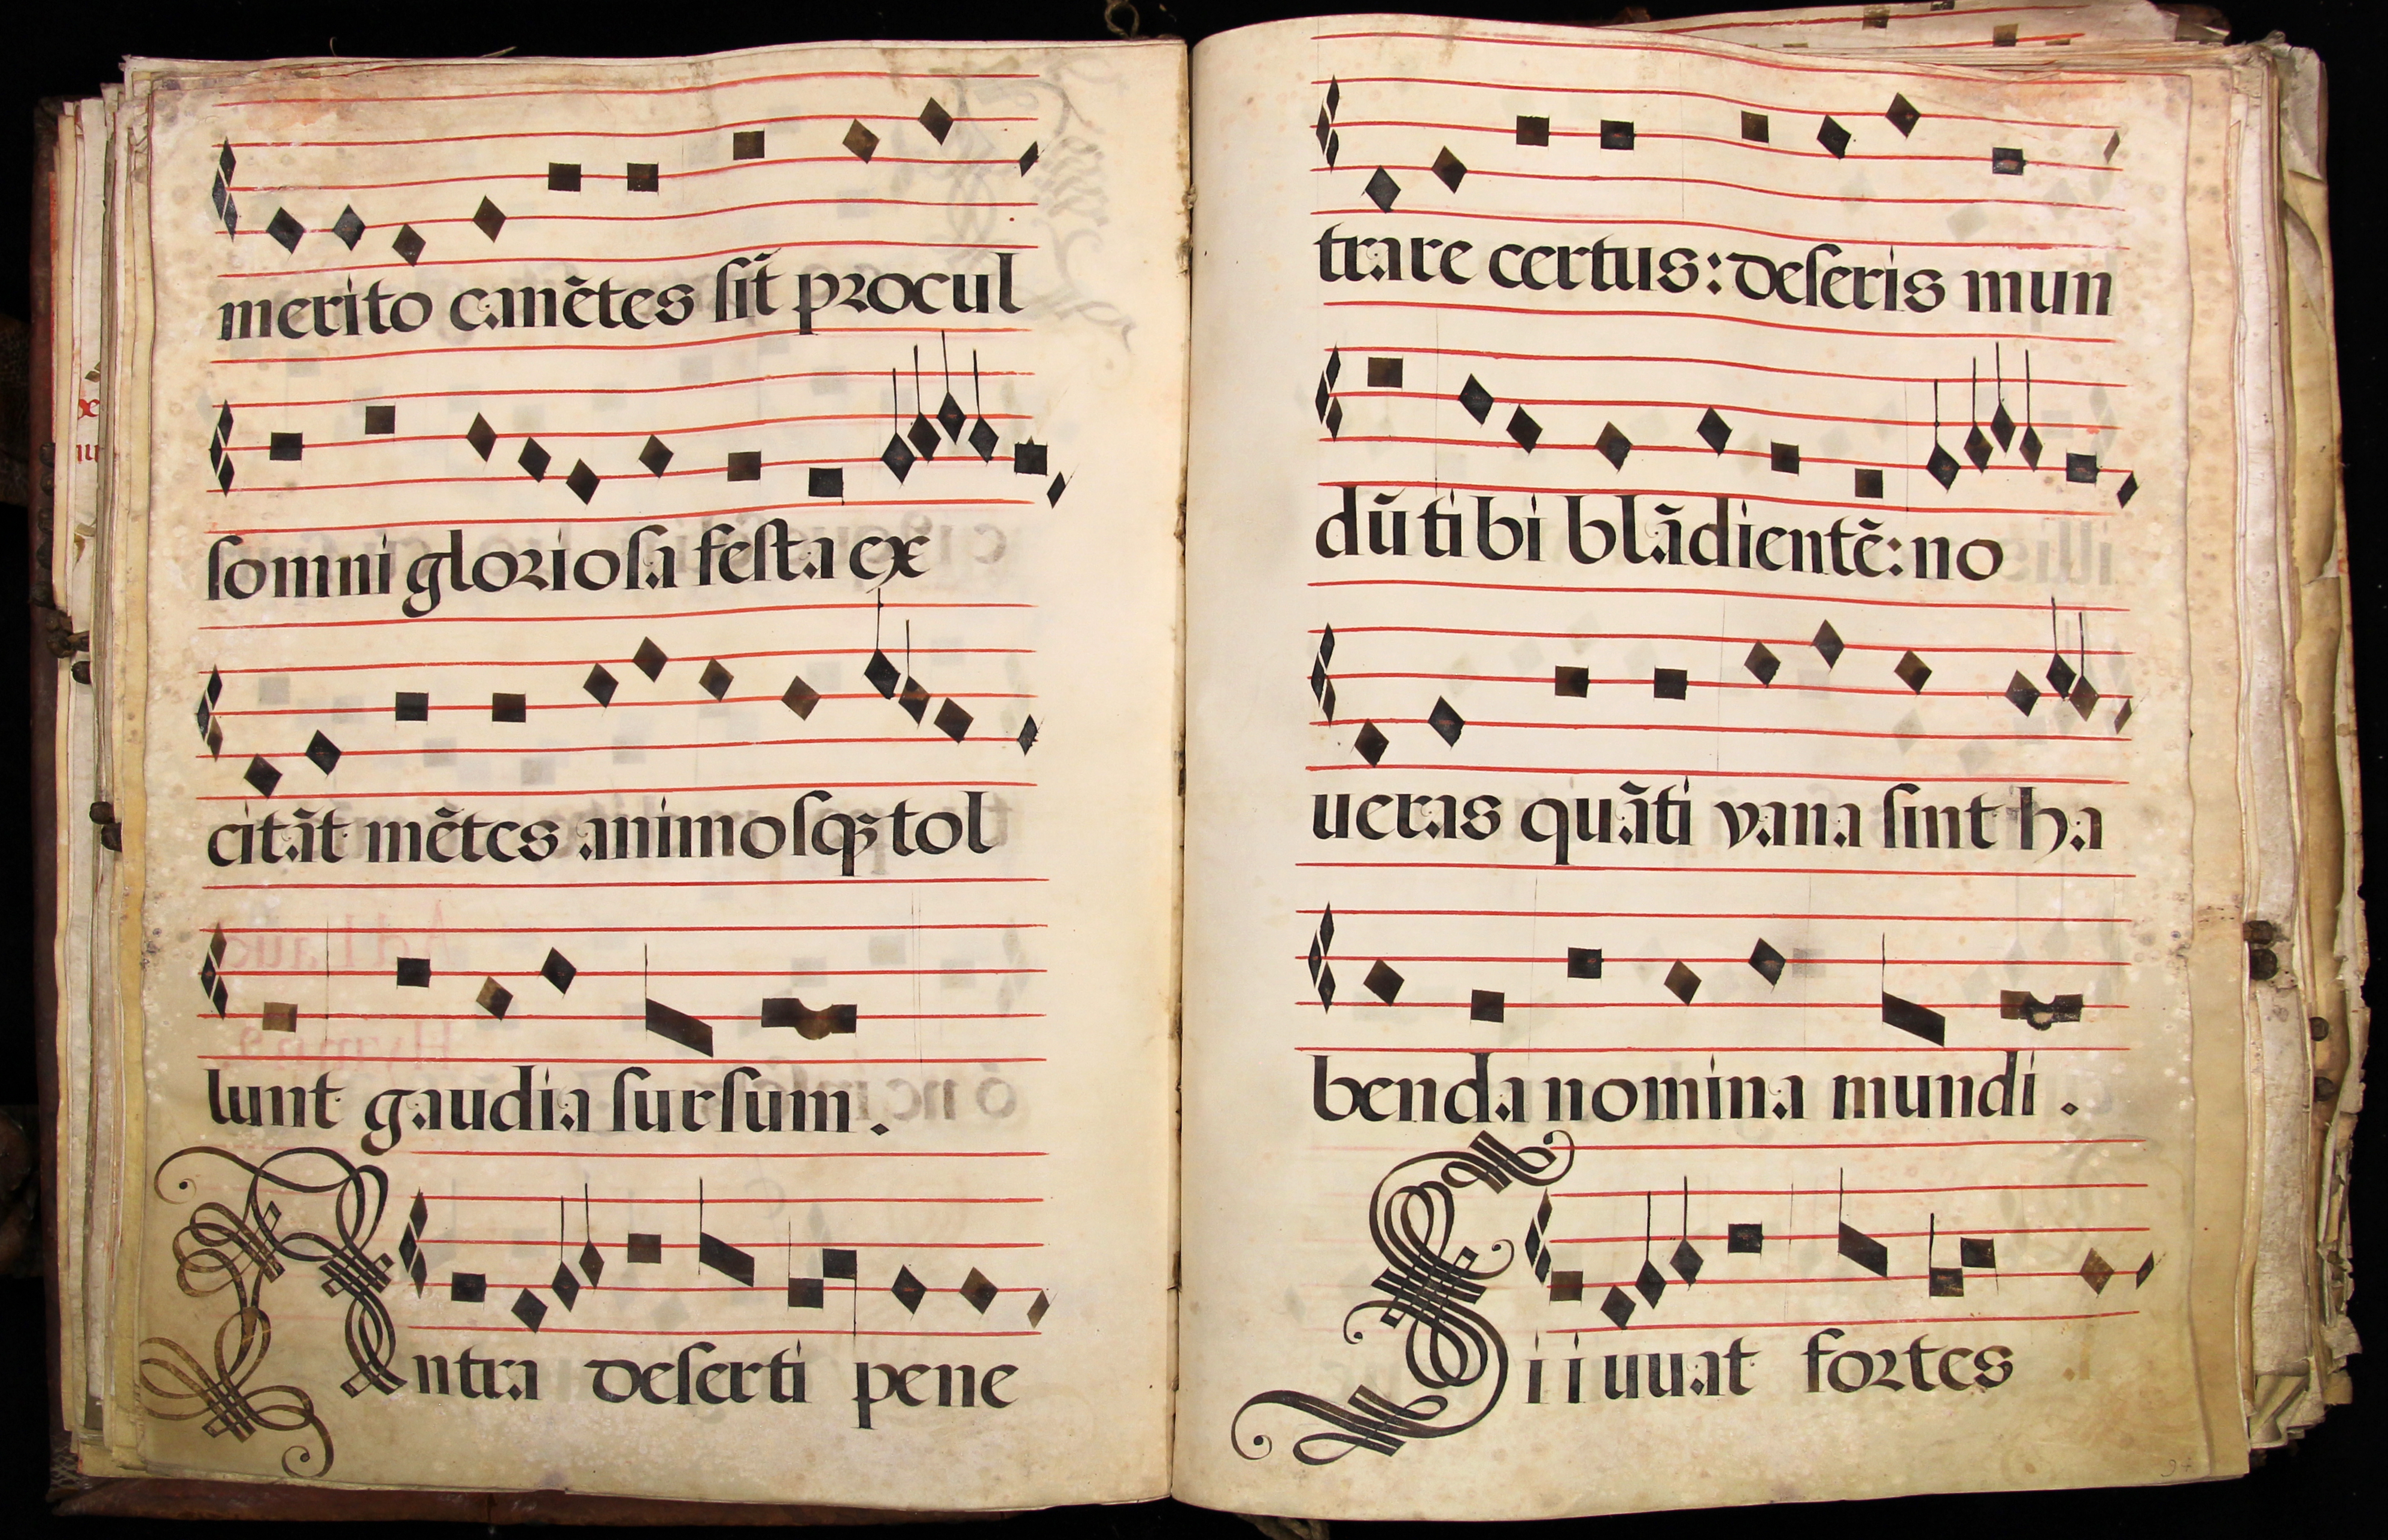 merito canẽtes ſit̃ procul
ſomni glorioſa feſta ex
citãt mẽtes animoſqꝫ tol
lunt gaudia ſurſum.
Intra deſerti pene
trare certus: deſeris mun
dũ tibi blãdientẽ: no
ueras quãti vana ſint ha
benda nomina mundi.
Si iuuat fortes